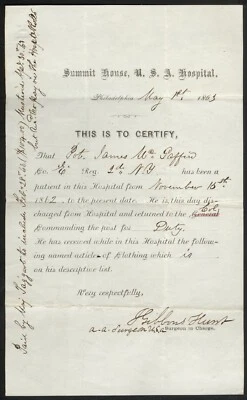 Summit House, U. S. A. Hospital.
Philadelphia May 1st, 1863
THIS IS TO CERTIFY,
That Pvt. James Mc Gaffin
Co. "E" Reg 2d N.Y. has been a
patient in this Hospital from November 15th
1862 to the present date. He is this day dis-
charged from Hospital and returned to the General Col
Commanding the post for Duty.
He has received while in this Hospital the follow-
ing named article of Clothing which is
on his descriptive list.
Very respectfully,
J Gibbons Hunt
a. a. Surgeon U.S.A. Surgeon in Charge.
Paid by Maj Taggart to include Feb 28th
but not the pay in the